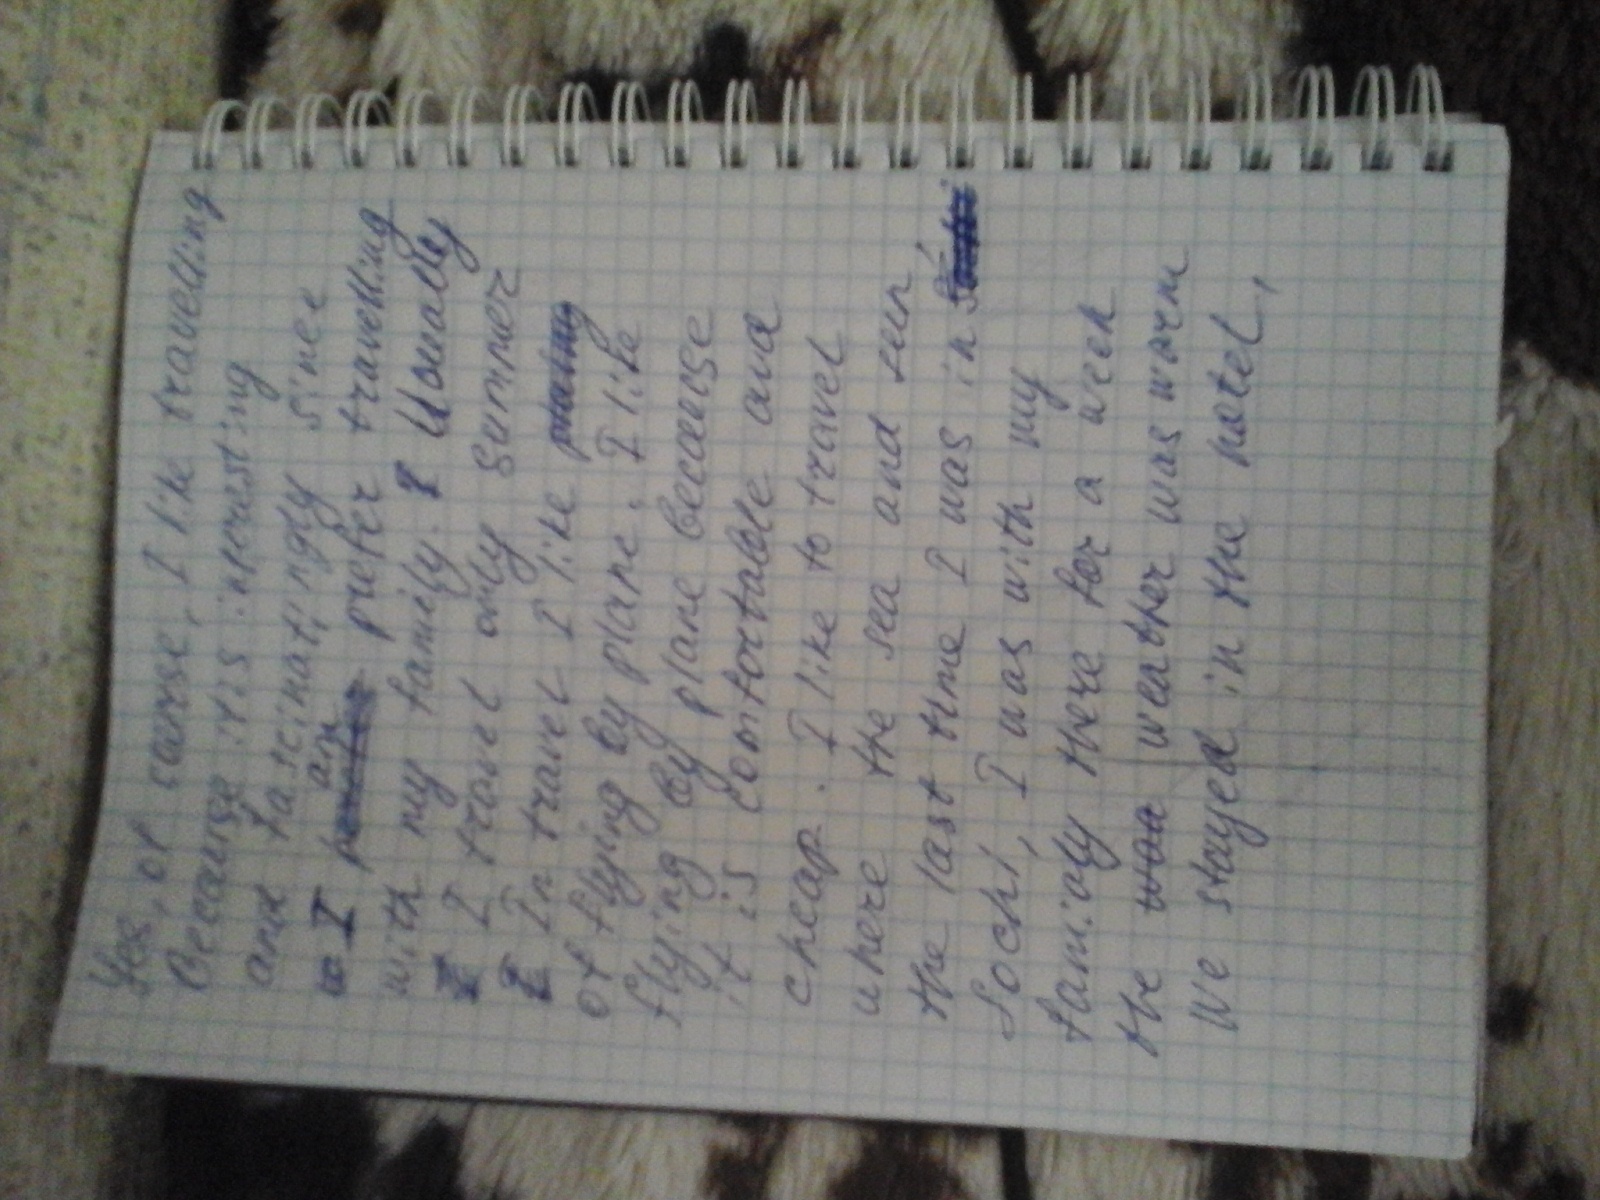 Yes, of caurse, I like travelling
Because it's inerousting
and fascinatingly since
an
I prefer travelling
with my family. Uoually
I travel only summer
In travel I like
of flying by plane. I like
flying by plane because
it is comfortable and
cheap. I like to travel
where the sea and sun
the last time I was in
Sochi, I was with my
family there for a week
the weather was warm
We stayed in the hotel,